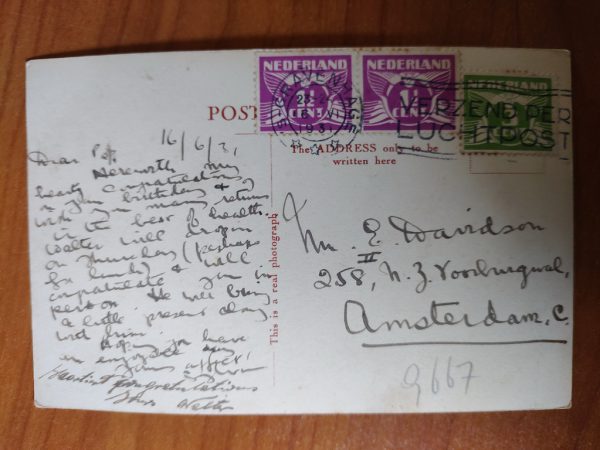 NEDERLAND
1½ CENT
NEDERLAND
1½ CENT
NEDERLAND
'S-GRAVENHAGE
16 VI
1931
VERZEND PER
LUCHTPOST
POST
The ADDRESS only to be
written here
This is a real photograph
16/6/31
Dear
Herewith my
hearty congratulations
on your birthday &
wish you many returns
in the best of health.
Walter will drop in
on Thursday (perhaps
for lunch) & will
congratulate you in
person. He will bring
a little present along
with him.
Hoping you have
an enjoyable day
Yours
Heartiest Congratulations
Walter
Mr. E. Davidson
258, N. Z. Voorburgwal, II
Amsterdam, C.
9667